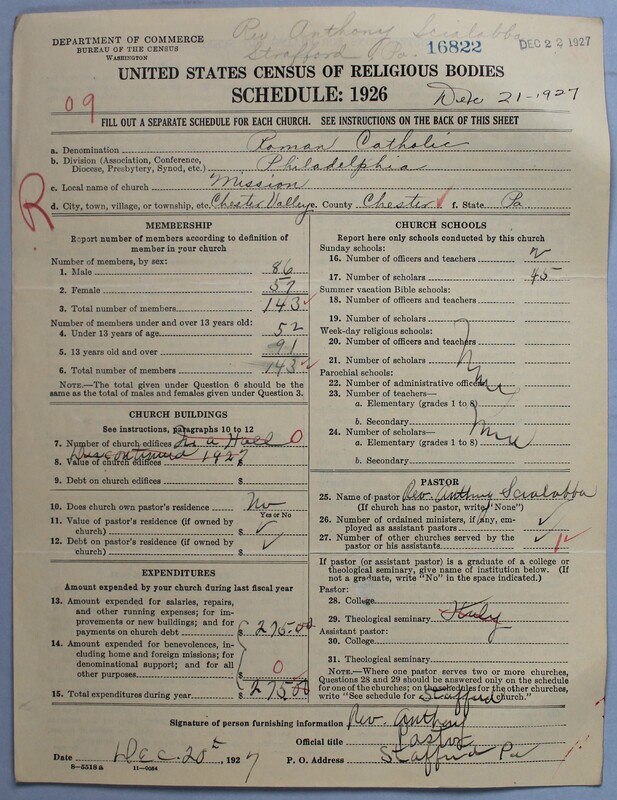 Rev. Anthony Scialabba
Strafford Pa.
DEPARTMENT OF COMMERCE
BUREAU OF THE CENSUS
WASHINGTON
16822
DEC 23 1927
UNITED STATES CENSUS OF RELIGIOUS BODIES
SCHEDULE: 1926
Dec 21-1927
09
FILL OUT A SEPARATE SCHEDULE FOR EACH CHURCH. SEE INSTRUCTIONS ON THE BACK OF THIS SHEET
a. Denomination Roman Catholic
b. Division (Association, Conference, Diocese, Presbytery, Synod, etc.) Philadelphia
c. Local name of church Mission
R
d. City, town, village, or township, etc. Chester Valley e. County Chester ✓ f. State Pa
MEMBERSHIP
Report number of members according to definition of
member in your church
Number of members, by sex:
1. Male 86
2. Female 57
3. Total number of members 143 ✓
Number of members under and over 13 years old:
4. Under 13 years of age 52
5. 13 years old and over 91
6. Total number of members 143 ✓
NOTE.—The total given under Question 6 should be
the same as the total of males and females given under Question 3.
CHURCH BUILDINGS
See instructions, paragraphs 10 to 12
7. Number of church edifices In a Hall 0
Discontinued 1927
8. Value of church edifices $
9. Debt on church edifices $
10. Does church own pastor's residence No
Yes or No
11. Value of pastor's residence (if owned by
church) $ ✓
12. Debt on pastor's residence (if owned by
church) $ ✓
EXPENDITURES
Amount expended by your church during last fiscal year
13. Amount expended for salaries, repairs,
and other running expenses; for im-
provements or new buildings; and for
payments on church debt $ 275.00
14. Amount expended for benevolences,
including home and foreign missions; for
denominational support; and for all
other purposes $ 0
15. Total expenditures during year $ 275.00
CHURCH SCHOOLS
Report here only schools conducted by this church
Sunday schools:
16. Number of officers and teachers 2
17. Number of scholars 45
Summer vacation Bible schools:
18. Number of officers and teachers
19. Number of scholars
Week-day religious schools:
20. Number of officers and teachers
21. Number of scholars
Parochial schools:
22. Number of administrative officers
23. Number of teachers—
a. Elementary (grades 1 to 8)
b. Secondary
24. Number of scholars—
a. Elementary (grades 1 to 8)
b. Secondary
PASTOR
25. Name of pastor Rev. Anthony Scialabba
(If church has no pastor, write "None")
26. Number of ordained ministers, if any, em-
ployed as assistant pastors ✓
27. Number of other churches served by the
pastor or his assistants
If pastor (or assistant pastor) is a graduate of a college or
theological seminary, give name of institution below. (If
not a graduate, write "No" in the space indicated.)
Pastor:
28. College
29. Theological seminary Italy
Assistant pastor:
30. College
31. Theological seminary
NOTE.—Where one pastor serves two or more churches,
Questions 28 and 29 should be answered only on the schedule
for one of the churches; on the schedules for the other churches,
write "See schedule for Strafford church."
Signature of person furnishing information Rev. Anthony
Official title Pastor
Date Dec. 20th, 1927 P. O. Address Strafford Pa
8—5518a 11—9054